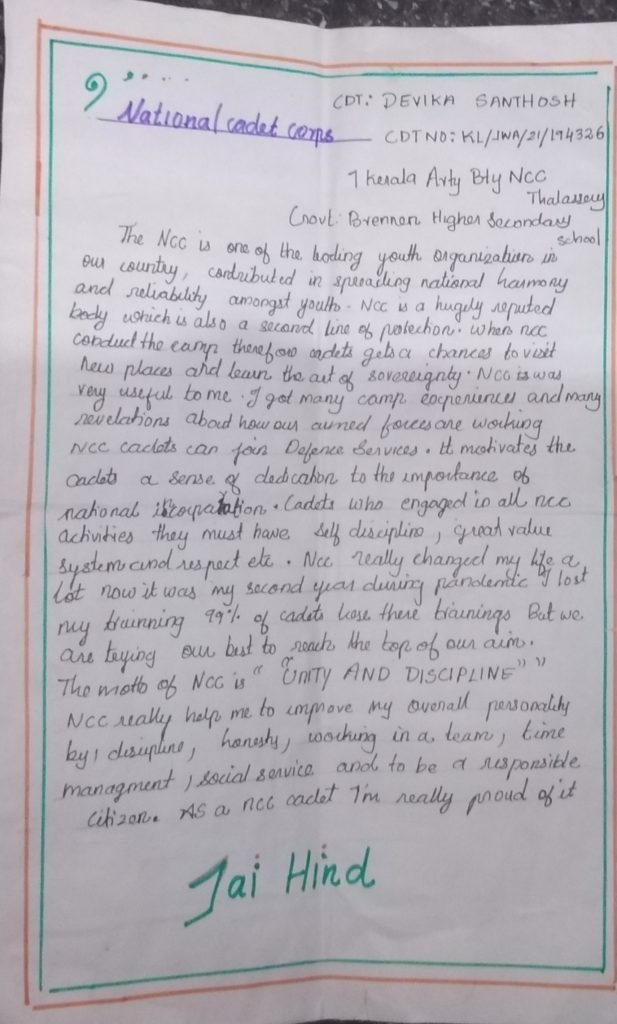 CDT: DEVIKA SANTHOSH
National cadet corps
CDT NO: KL/JWA/21/194326
1 Kerala Arty Bty NCC
Thalassery
Govt. Brennen Higher Secondary
school
The NCC is one of the leding youth organization in
our country, contributed in spreading national harmony
and reliability amongst youths. NCC is a hugely reputed
body which is also a second line of protection. when ncc
conduct the camp therefore cadets gets a chances to visit
new places and learn the art of sovereignty. NCC is was
very useful to me. I got many camp experiences and many
revelations about how our armed forces are working
NCC cadets can join Defence Services. It motivates the
cadets a sense of dedication to the importance of
national
. Cadets who engaged in all ncc
activities they must have self discipline, great value
system and respect etc. Ncc really changed my life a
lot now it was my second year during pandemic I lost
my trainning 99% of cadets lose there trainings But we
are trying our best to reach the top of our aim.
The motto of NCC is " "UNITY AND DISCIPLINE" "
NCC really help me to improve my overall personality
by, discipline, honesty, working in a team, time
managment, social service and to be a responsible
citizen. AS a ncc cadet I'm really proud of it
Jai Hind